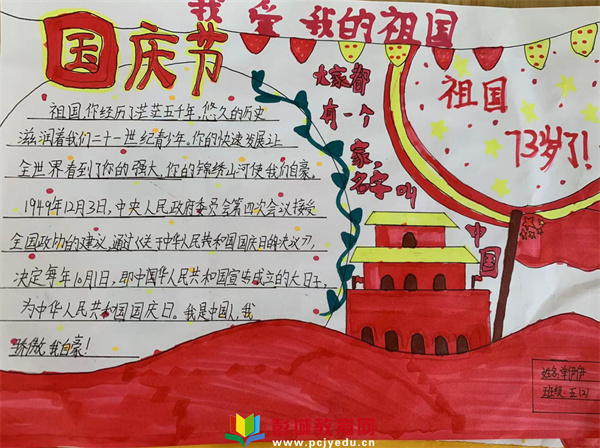 我爱我的祖国
国庆节
祖国,你经历了茫茫五千年,悠久的历史
滋润着我们二十一世纪青少年,你的快速发展让
全世界看到了你的强大,你的锦绣山河使我们自豪。
1949年12月3日,中央人民政府委员会第四次会议接受
全国政协的建议,通过《关于中华人民共和国国庆日的决议》,
决定每年10月1日,即中国华人民共和国宣告成立的大日子,
为中华人民共和国国庆日。我是中国人,我
骄傲,我自豪!
大家都
有一个
家,
名字叫
中国
祖国
73岁了!
班级:五(2)
www.pcjyedu.cn